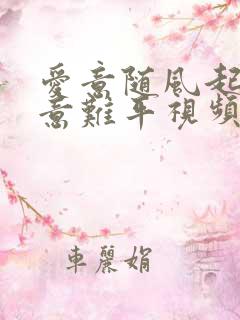 愛意随風起
意難平視頻
車麗娟